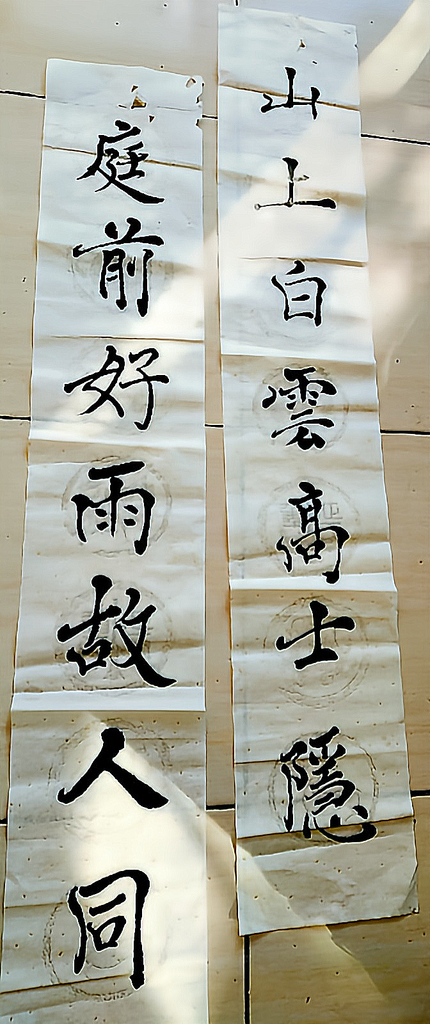 山上白雲高士隱
庭前好雨故人同